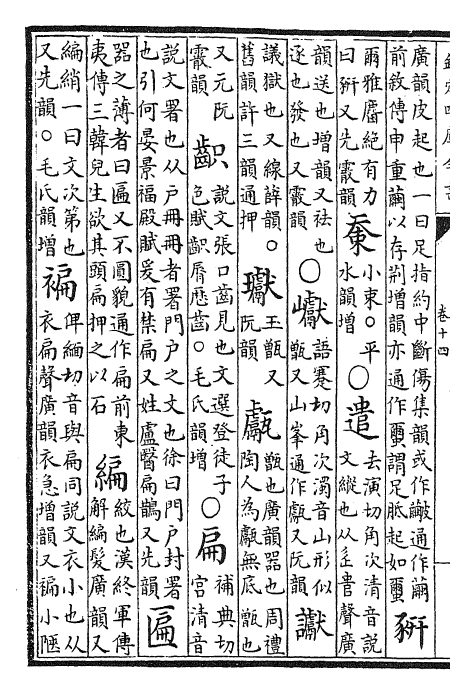 欽定四庫全書
卷十四
廣韻皮起也一曰足指約中斷傷集韻或作皸通作繭
前敘傳申重繭以存荆增韻亦通作䌳謂足胝起如䌳
豣
爾雅麕絶有力
曰豣又先霰韻
㯥
小束。平
水韻增
○遣
去演切角次清音説
文縱也从辵𠳋聲廣
韻送也增韻又祛也
逐也發也又霰韻
○巘
語蹇切角次濁音山形似
甑又山峯通作甗又阮韻
讞
議獄也又線薛韻。
舊韻許三韻通押
瓛
玉甑又
阮韻
甗
甑也廣韻器也周禮
陶人為甗無底甑也
又元阮
霰韻
齞
説文張口齒見也文選登徒子
色賦齞脣歷齒。毛氏韻增
○扁
補典切
宮清音
説文署也从戶冊冊者署門戶之文也徐曰門戶封署
也引何晏景福殿賦爰有禁扁又姓盧醫扁鵲又先韻
匾
器之薄者曰匾又不圓貌通作扁前東
夷傳三韓兒生欲其頭扁押之以石
編
絞也漢終軍傳
解編髮廣韻又
編綃一曰文次第也
又先韻。毛氏韻增
褊
俾緬切音與扁同説文衣小也从
衣扁聲廣韻衣急增韻又褊小陋